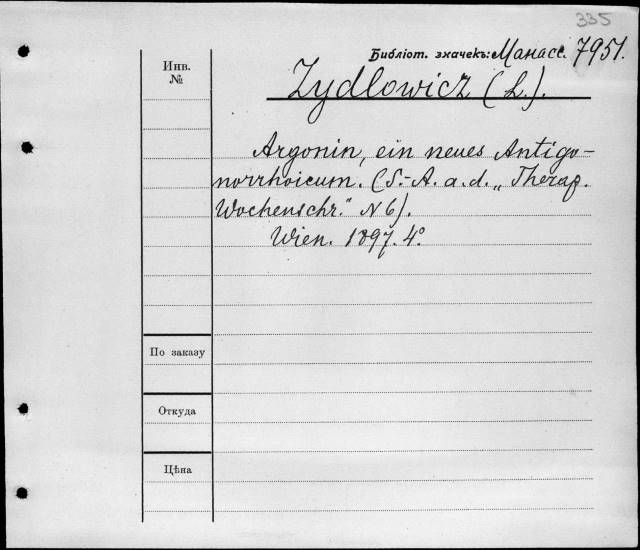 335
Библіот. значекъ: Манасс. 7951.
Инв.
№
Zydlowicz (L.).
Argonin, ein neues Antigo-
norrhoicum. (S.-A. a. d. „Therap.
Wochenschr." N 6).
Wien. 1897. 4°
По заказу
Откуда
Цѣна